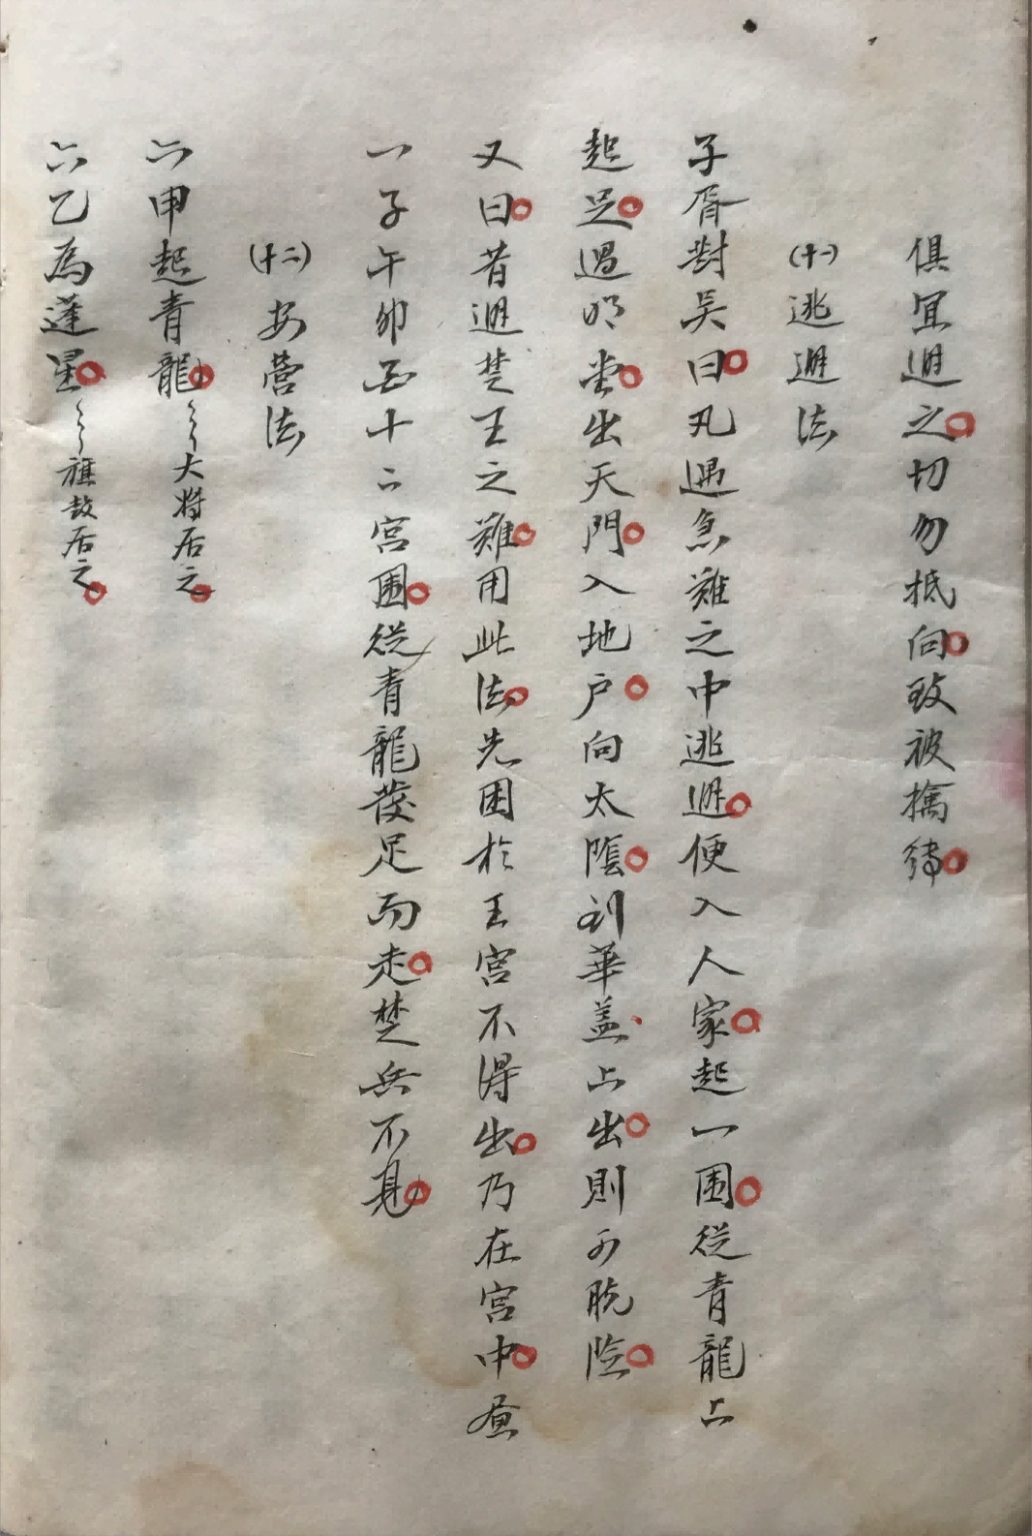 俱宜避之。切勿抵向。致被擒縛。
(十一)逃避法
子胥對吴曰。凡遇急難之中逃避。便入人家。起一圍。從青龍上
起足。過明堂。出天門。入地户。向太陰。到華盖、上出。則可脱險。
又曰。昔避楚王之難。用此法。先困於王宫不得出。乃在宫中。畫
一子午卯酉十二宫圍。從青龍發足而走。楚兵不見。
(十二)安营法
六甲起青龍。〻〻大将居之。
六乙為蓬星。〻〻旗鼓居之。